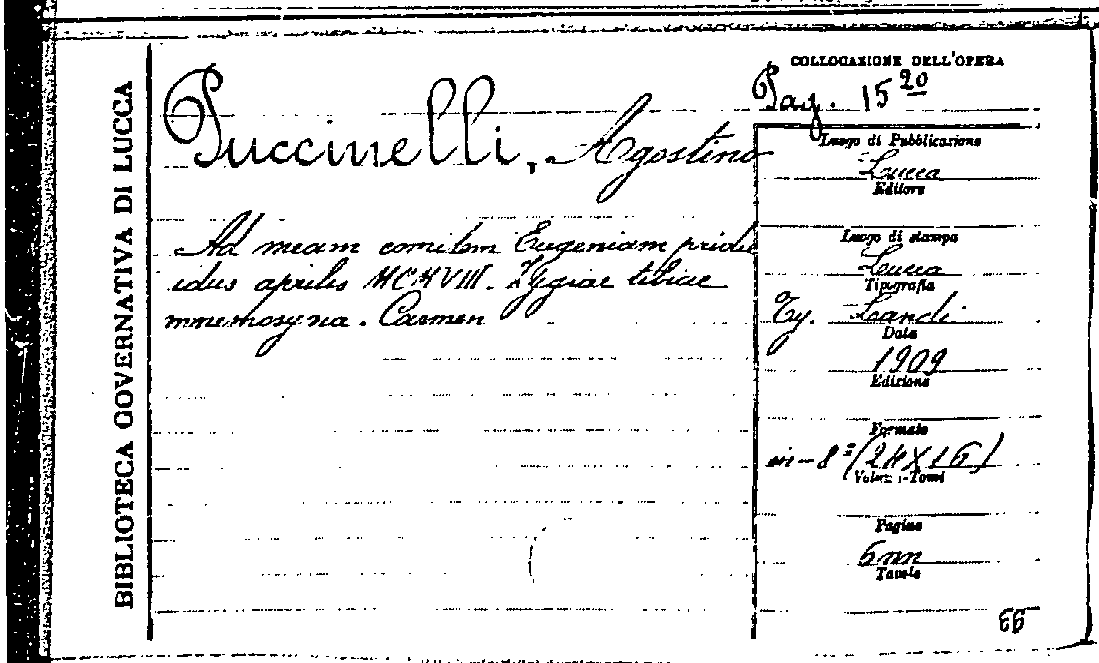 BIBLIOTECA GOVERNATIVA DI LUCCA
Puccinelli, Agostino
Ad meam comitem Eugeniam pridie
idus aprilis MCMVIII. Iggiae tibiae
mnemosyna. Carmen
COLLOCAZIONE DELL'OPERA
Pag. 15 20
Luogo di Pubblicazione
Lucca
Editore
Luogo di stampa
Lucca
Tipografia
Ty. Landi
Data
1909
Edizione
Formato
in-8º (24X16)
Volumi-Tomi
Pagine
6nn
Tavole